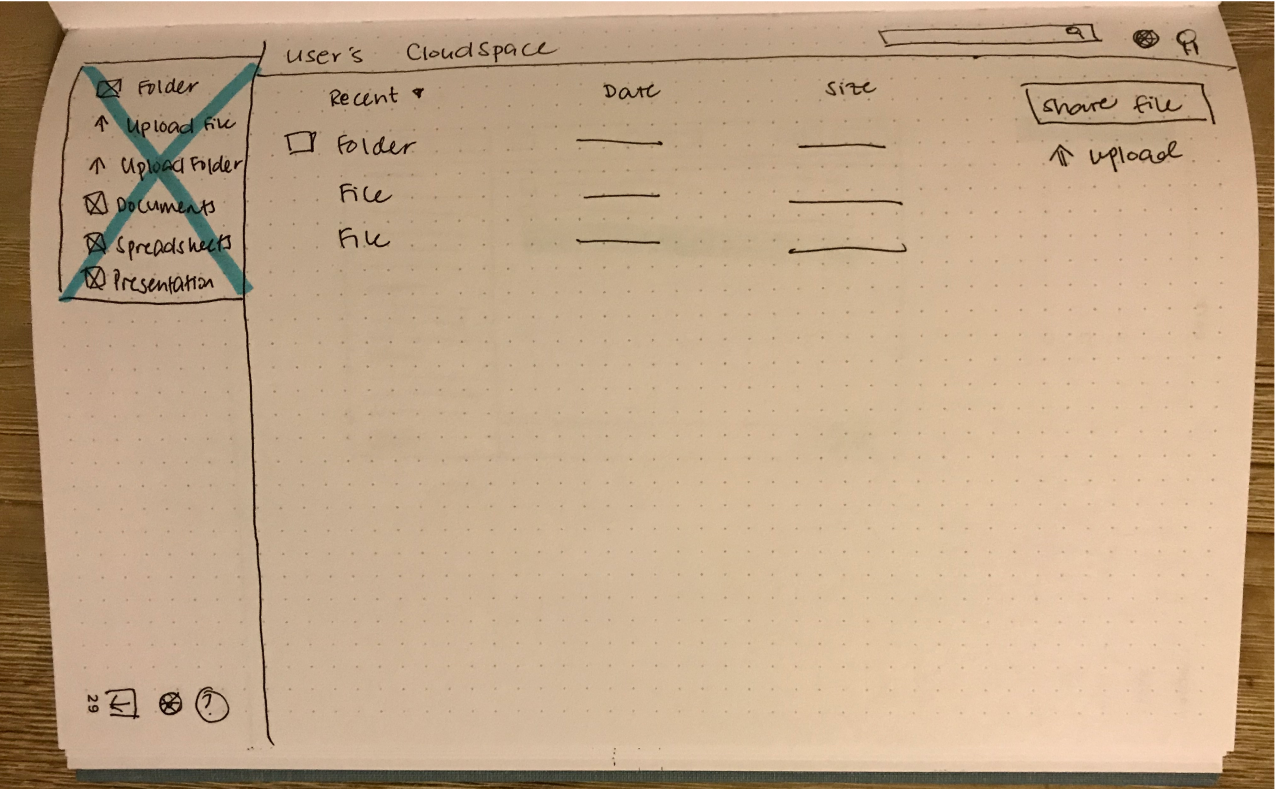 User's CloudSpace
Folder
Upload File
Upload Folder
Documents
Spreadsheets
Presentation
Recent Date Size
Folder
File
File
Share file
upload
29
?